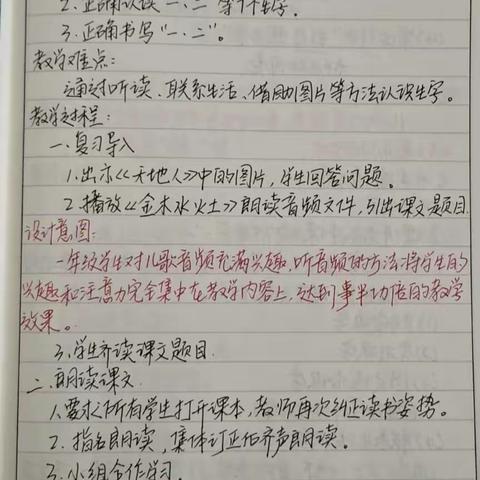 2.正确认读“一、二”等7个生字.
3.正确书写“一、二”。
教学难点：
通过听读、联系生活、借助图片等方法认识生字。
教学过程：
一.复习导入
1.出示《天地人》中的图片，学生回答问题。
2.播放《金木水火土》朗读音频文件，引出课文题目.
设计意图：
一年级学生对儿歌音频充满兴趣，听音频的方法将学生的
兴趣和注意力完全集中在教学内容上，达到事半功倍的教学
效果。
3.学生齐读课文题目.
二.朗读课文.
1.要求所有学生打开课本，教师再次纠正读书姿势。
2.指名朗读，集体订正后齐声朗读。
3.小组合作学习.